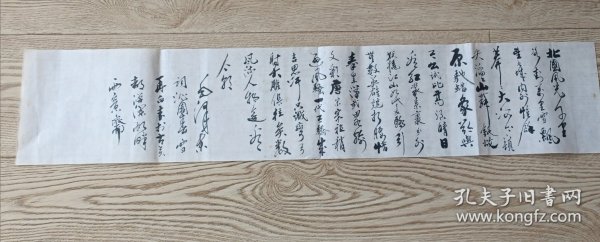 北國風光千里
冰封萬里雪飄
望長城內外惟餘
莽莽大河上下頓
失滔滔山舞銀蛇
原馳蠟象欲與
天公試比高須晴日
看紅裝素裹分外
妖嬈江山如此多嬌引
無數英雄競折腰惜
秦皇漢武略輸
文采唐宗宋祖稍
遜風騷一代天驕成
吉思汗只識彎弓
射大雕俱往矣數
風流人物還看
今朝
毛澤東
詞沁園春雪
孔夫子旧书网
www.kongfz.com